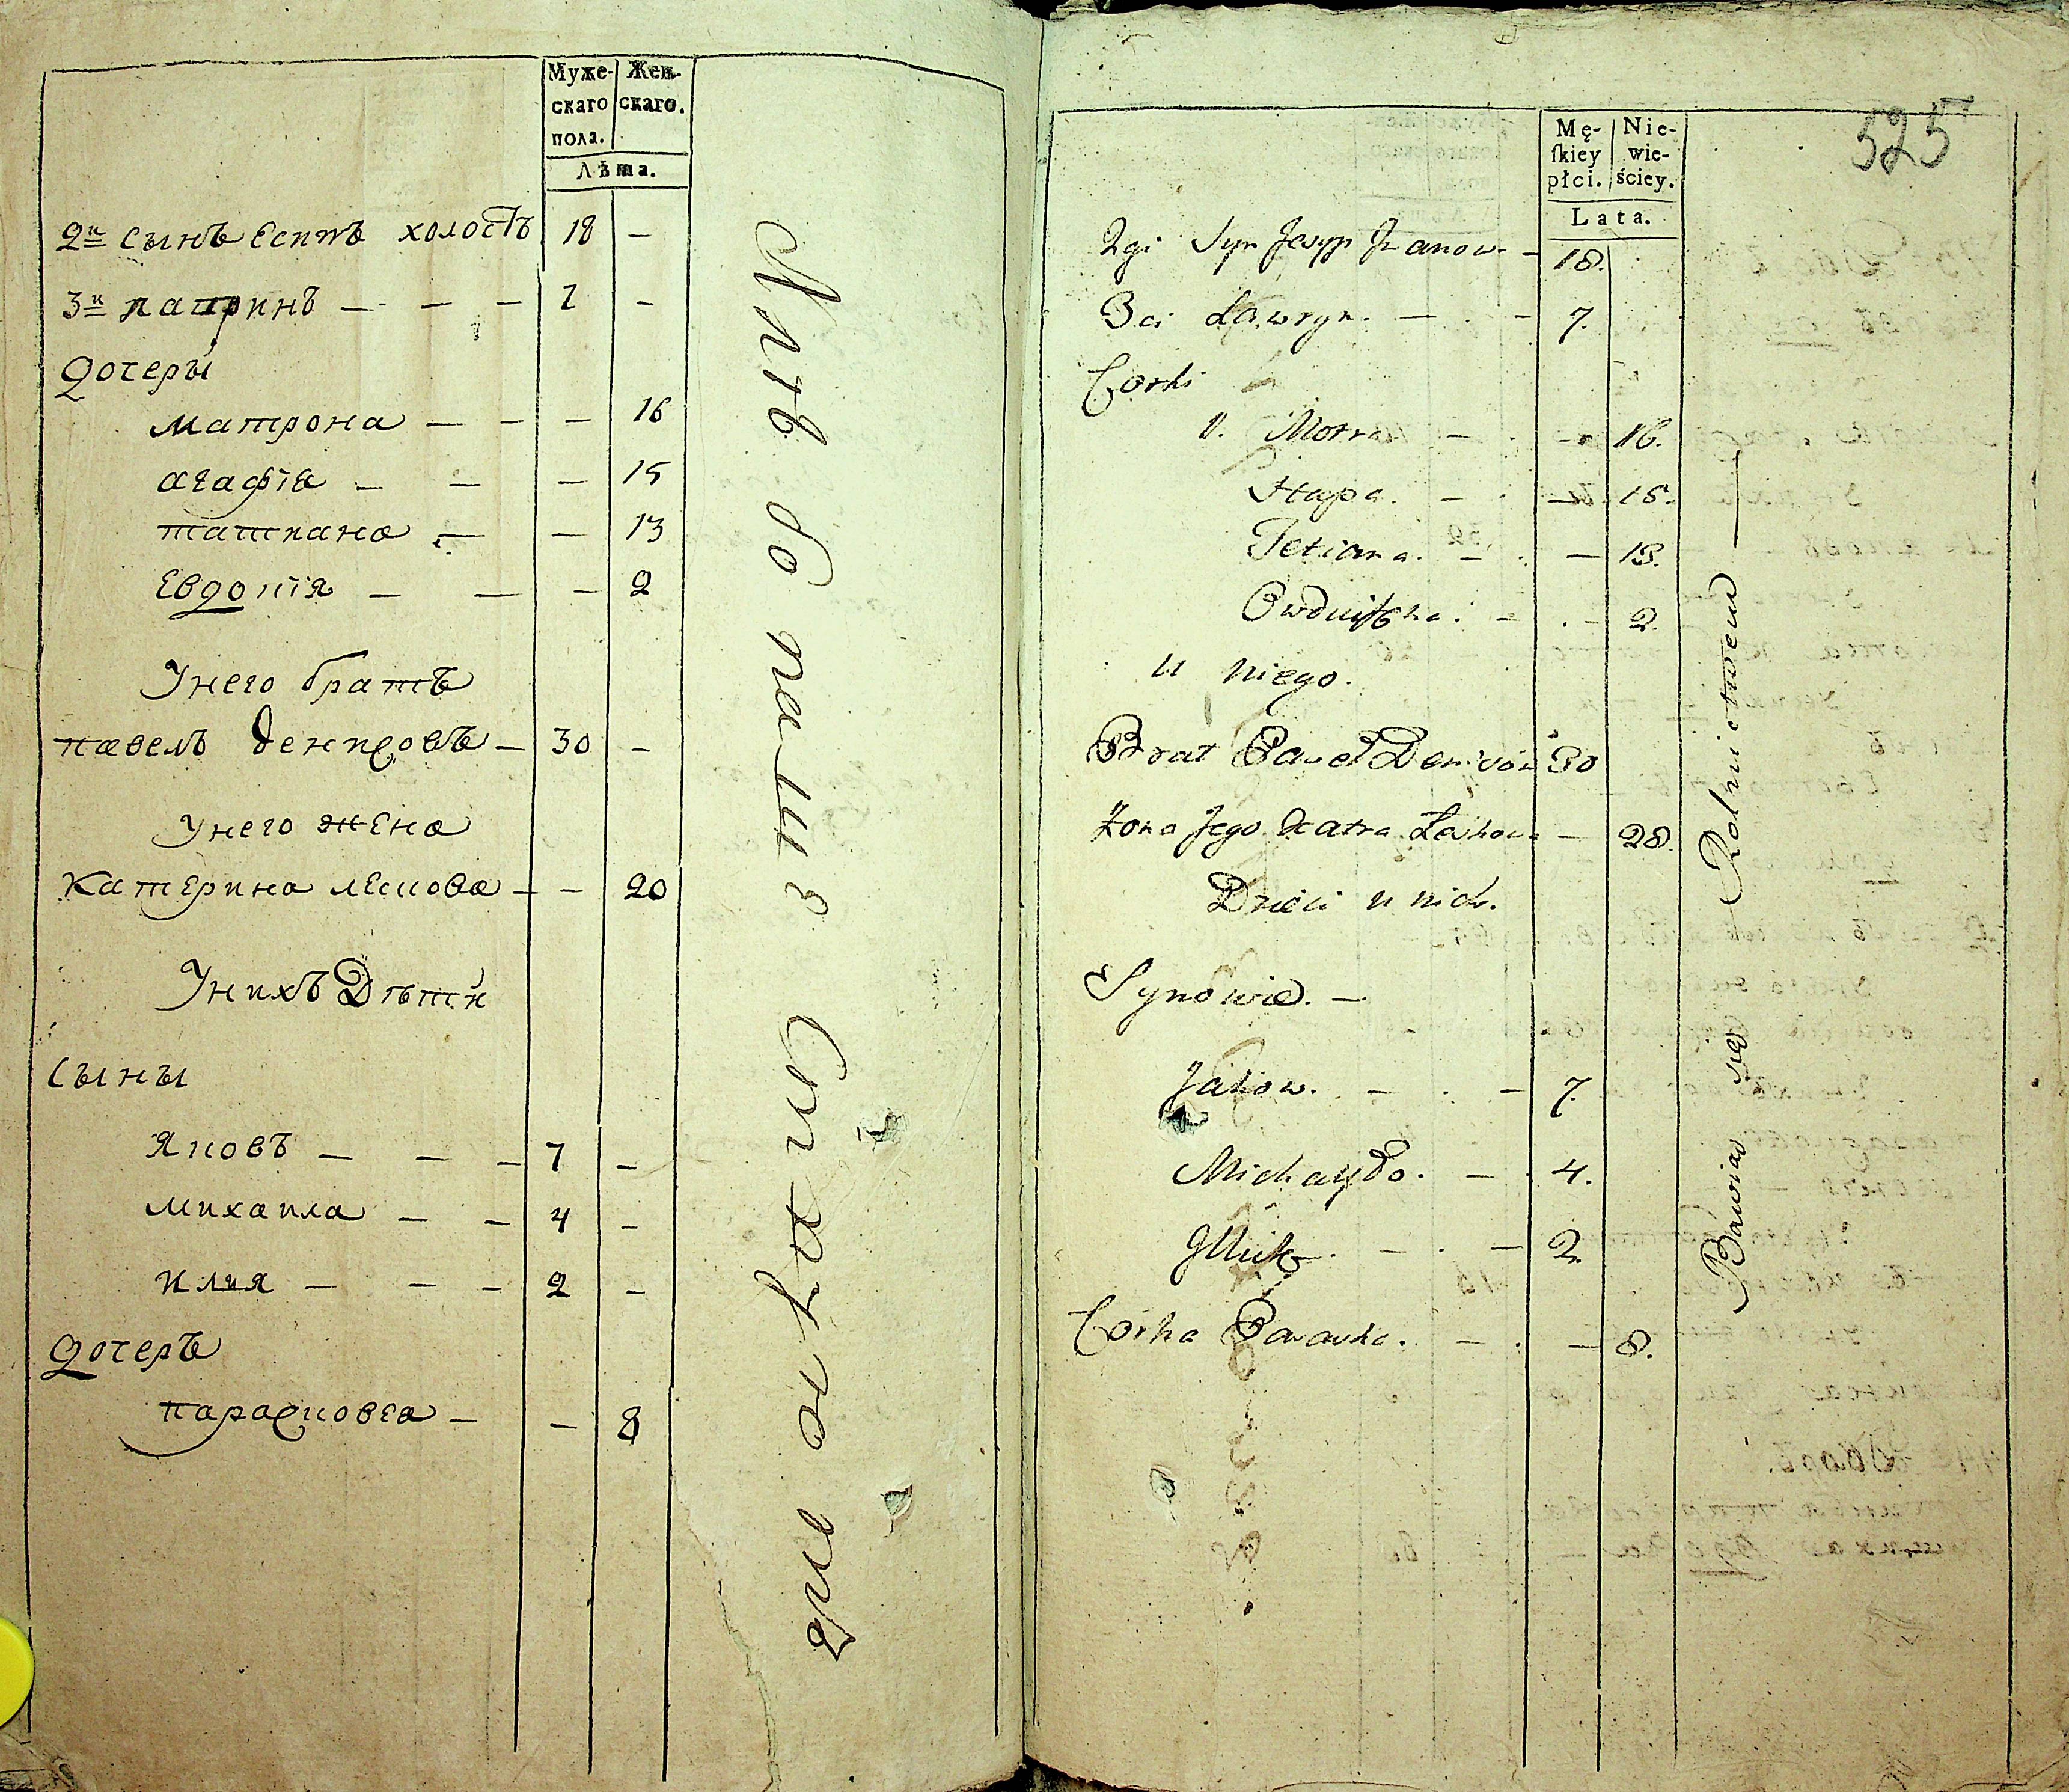 Муже-
скаго
пола.
Жен-
скаго.
Лѣта.
2й сынъ Есипъ холостъ 18 —
3й лавринъ — — — 7 —
Дочеры
матрона — — — 16
агафія — — — 15
татиана — — 13
Евдокія — — — 2
У него братъ
павелъ денисовъ — 30 —
У него жена
Катерина — — 20
У нихъ Дѣти
сыны
Яковъ — — — 7 —
михаила — — 4 —
илия — — — 2 —
Дочеръ
парасковея — — 8
525
Mę-
ſkiey
płci.
Nie-
wie-
ściey.
Lata.
2gi Syn Jasyp — 18.
3ci Ławryn. — . — 7.
Corki
1. Motra — . — 16.
Hapa. — . — 15.
Tetiana. — . — 13.
. — . — 2.
u niego.
Brat Paweł Denisów 30
Żona Jego Katra — 28.
Dzieci u nich.
Synowie. —
Jakow. — . — 7.
Michayło. — . 4.
. — . — 2.
Corka Paraska. — . — 8.
Bawias się Rolnictwem —